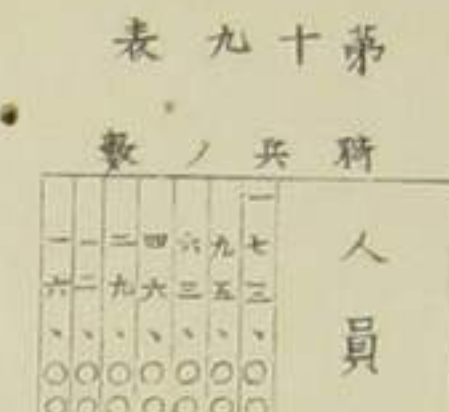 苐十九表
騎兵ノ數
人員
一七三、〇〇
九五、〇〇
六三、〇〇
四六、〇〇
二九、〇〇
一二、〇〇
一六、〇〇